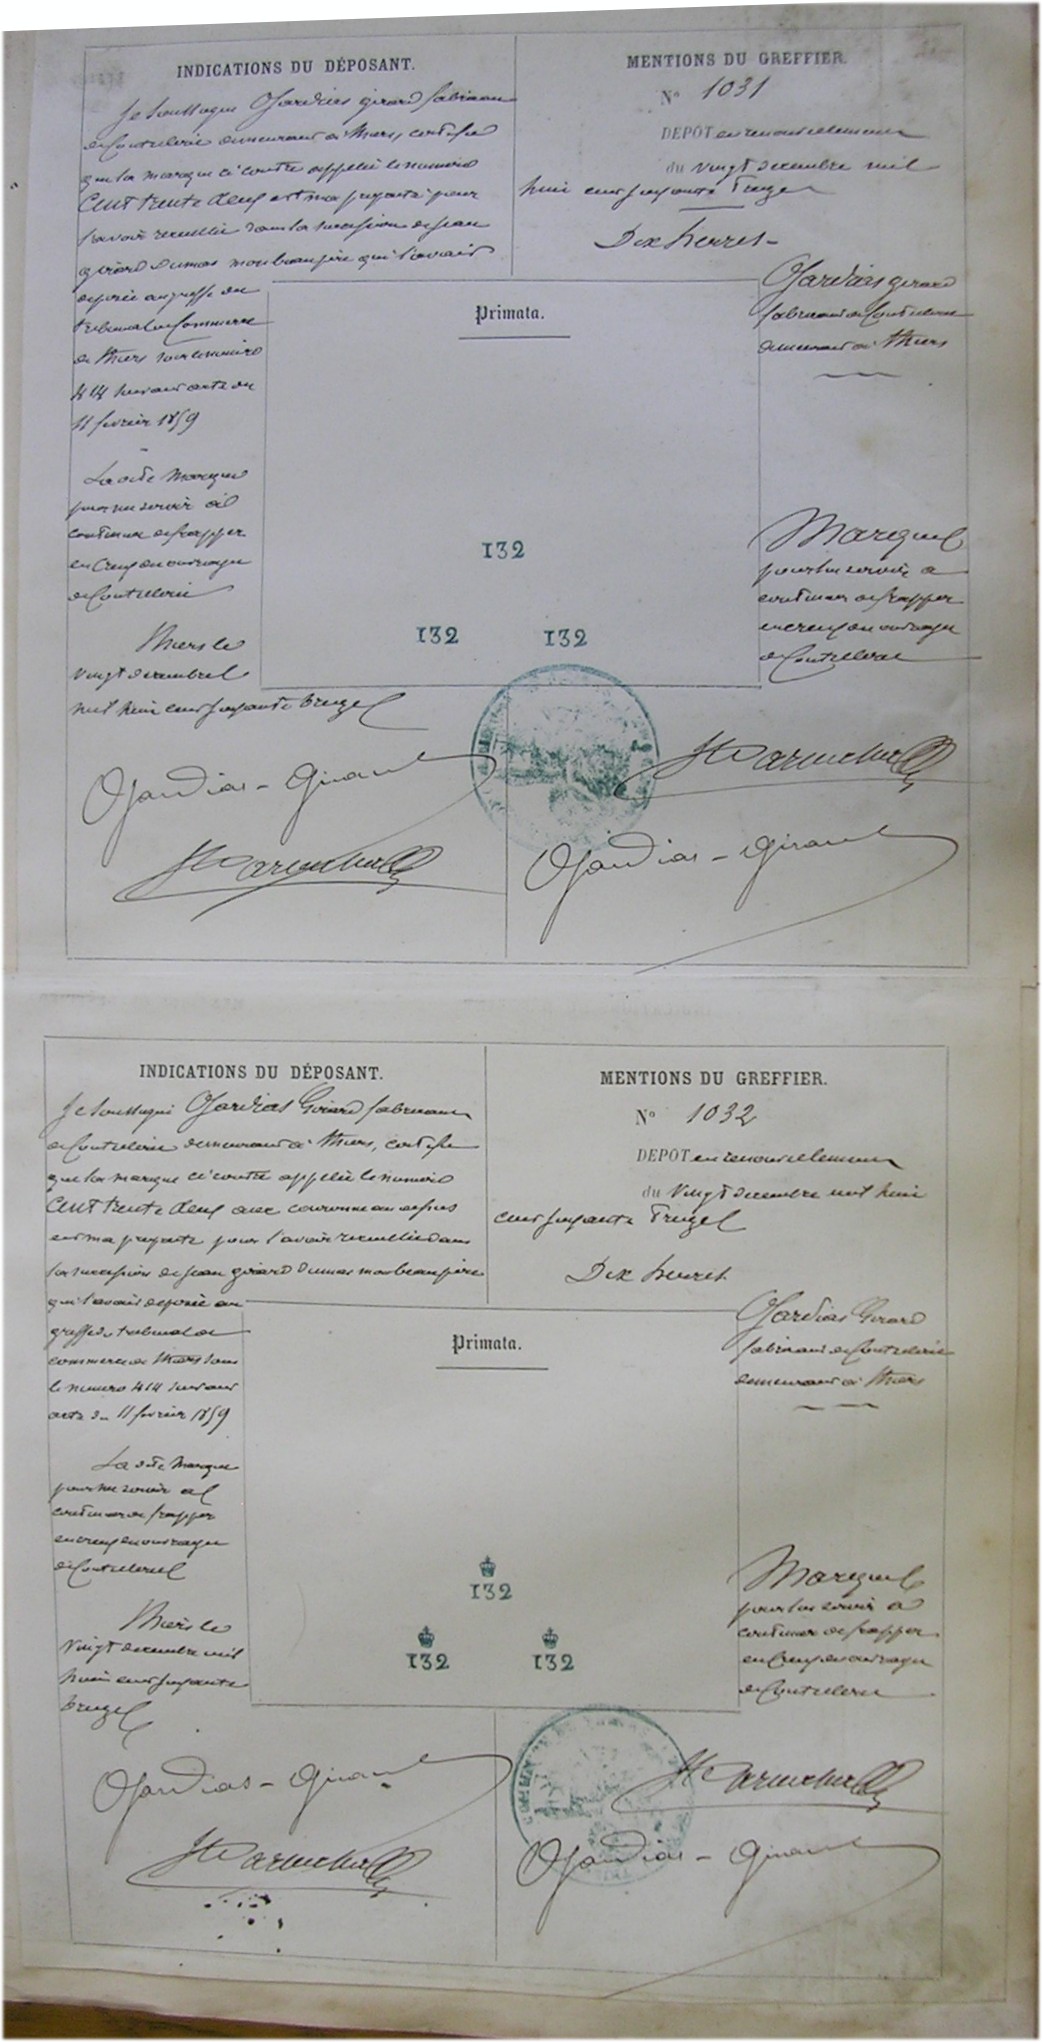 INDICATIONS DU DÉPOSANT.
Je soussigné Ojardias girard fabricant
de Coutellerie demeurant à Thiers, certifie
que la marque ci contre appellée le numéro
Cent trente deux est ma propriété pour
l'avoir recueillie dans la succession de jean
girard Dumas mon beau père qui l'avait
déposée au greffe du
tribunal de Commerce
de Thiers sous le numéro
414 suivant acte du
11 février 1859
La dite Marque
pour me servir à
continuer de frapper
en Creux en ouvrages
de Coutellerie
Thiers le
vingt décembre
mil huit cent soixante treize
Ojardias-Girard
MENTIONS DU GREFFIER.
N° 1031
DÉPOT en renouvellement
du vingt décembre mil
huit cent soixante Treize
Dix heures
Ojardias girard
fabricant de Coutellerie
demeurant à Thiers
Primata.
132
132 132
Marque
pour lui servir à
continuer de frapper
en creux en ouvrages
de Coutellerie
Ojardias-Girard
INDICATIONS DU DÉPOSANT.
Je soussigné Ojardias Girard fabricant
de Coutellerie demeurant à Thiers, certifie
que la marque ci contre appellée le numéro
Cent trente deux avec couronne au dessus
est ma propriété pour l'avoir recueillie dans
la succession de jean girard Dumas mon beau père
qui l'avait déposée au
greffe du tribunal de
commerce de Thiers sous
le numéro 414 suivant
acte du 11 février 1859
La dite Marque
pour me servir à
continuer de frapper
en creux en ouvrages
de Coutellerie
Thiers le
vingt décembre mil
huit cent soixante
treize
Ojardias-Girard
MENTIONS DU GREFFIER.
N° 1032
DÉPOT en renouvellement
du Vingt décembre mil huit
cent soixante Treize
Dix heures
Ojardias Girard
fabricant de Coutellerie
demeurant à Thiers
Primata.
132
132 132
Marque
pour lui servir à
continuer de frapper
en Creux en ouvrages
de Coutellerie
Ojardias-Girard